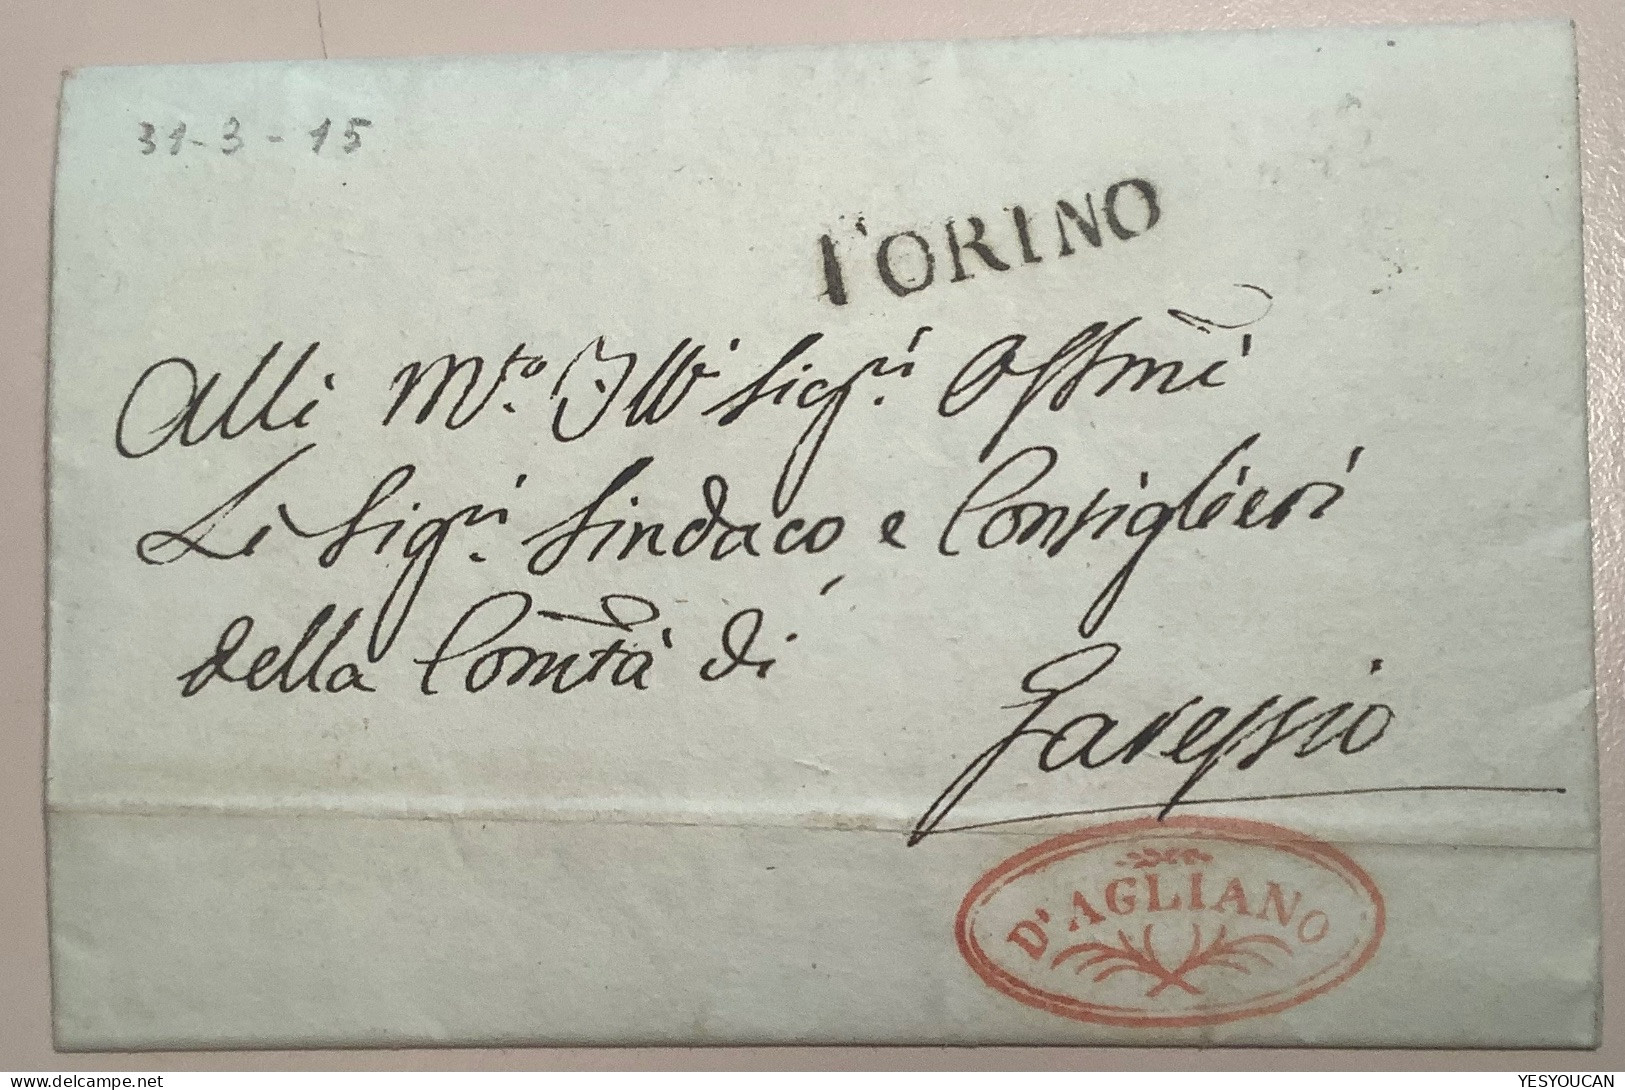 31-3-15
TORINO
Alli M.to Ill.i Sig.ri Ossmi
Li Sig.ri Sindaco, e Consiglieri
della Comtà di
Garessio
D'AGLIANO
delcampe.net
YESYOUCAN